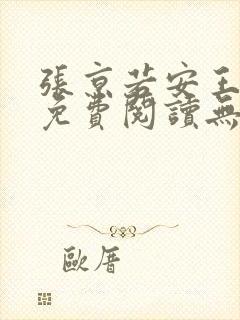 張京若安王
免費閱讀無
歐厝